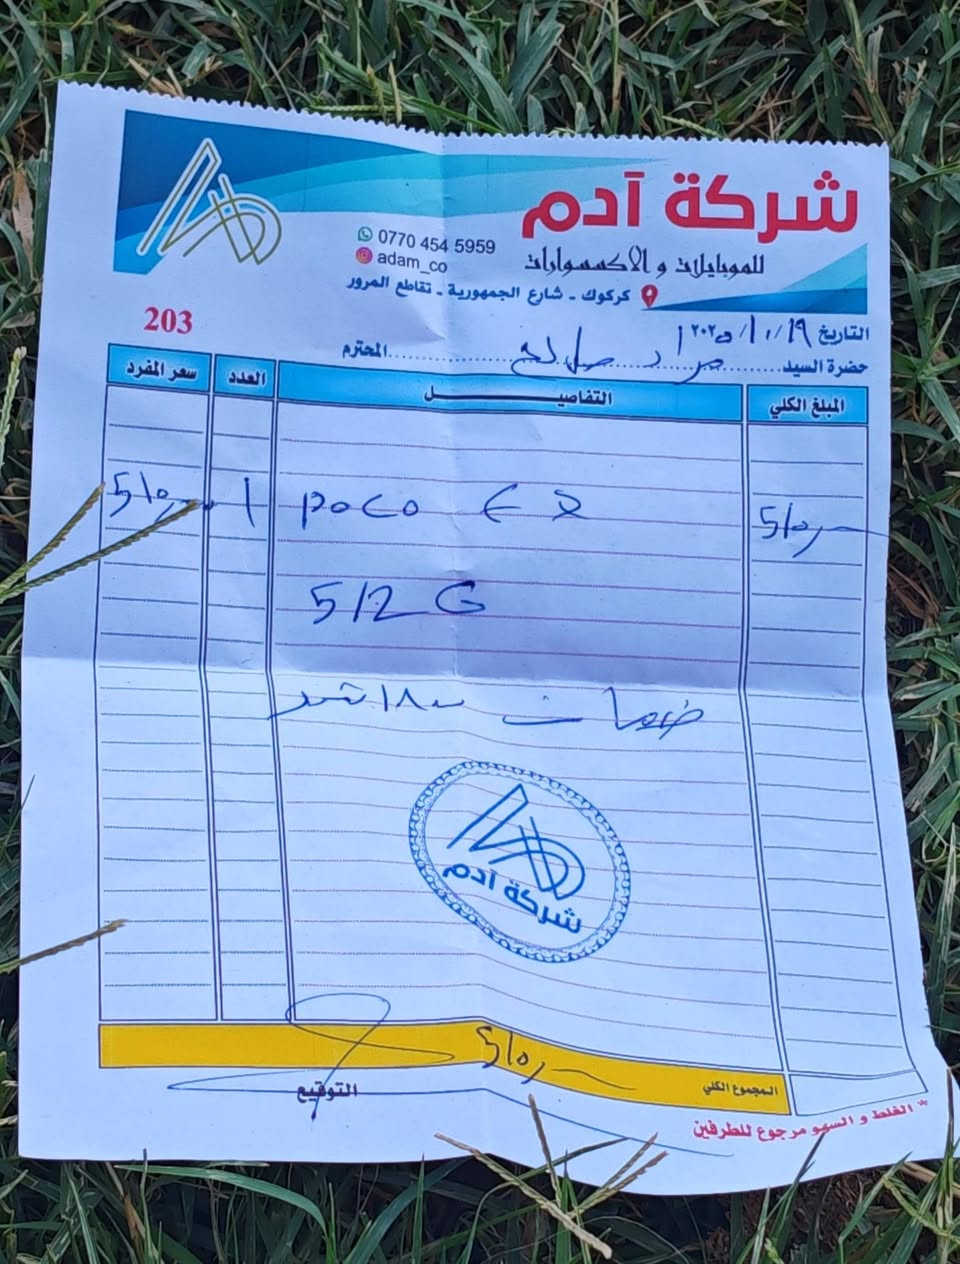 شركة آدم
للموبايلات و الاكسسوارات
0770 454 5959
adam_co
كركوك - شارع الجمهورية - تقاطع المرور
203
التاريخ ١٩/١٠/٢٠٢٥
حضرة السيد مراد صالح المحترم
المبلغ الكلي التفاصيـــل العدد سعر المفرد
poco 1
512 G
شركة آدم
المجموع الكلي
التوقيع
* الغلط و السهو مرجوع للطرفين